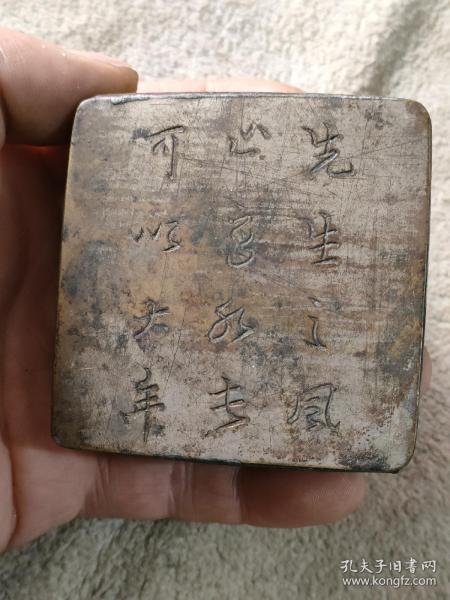 先生之风
山高水长
可以大年
孔夫子旧书网
www.kongfz.com